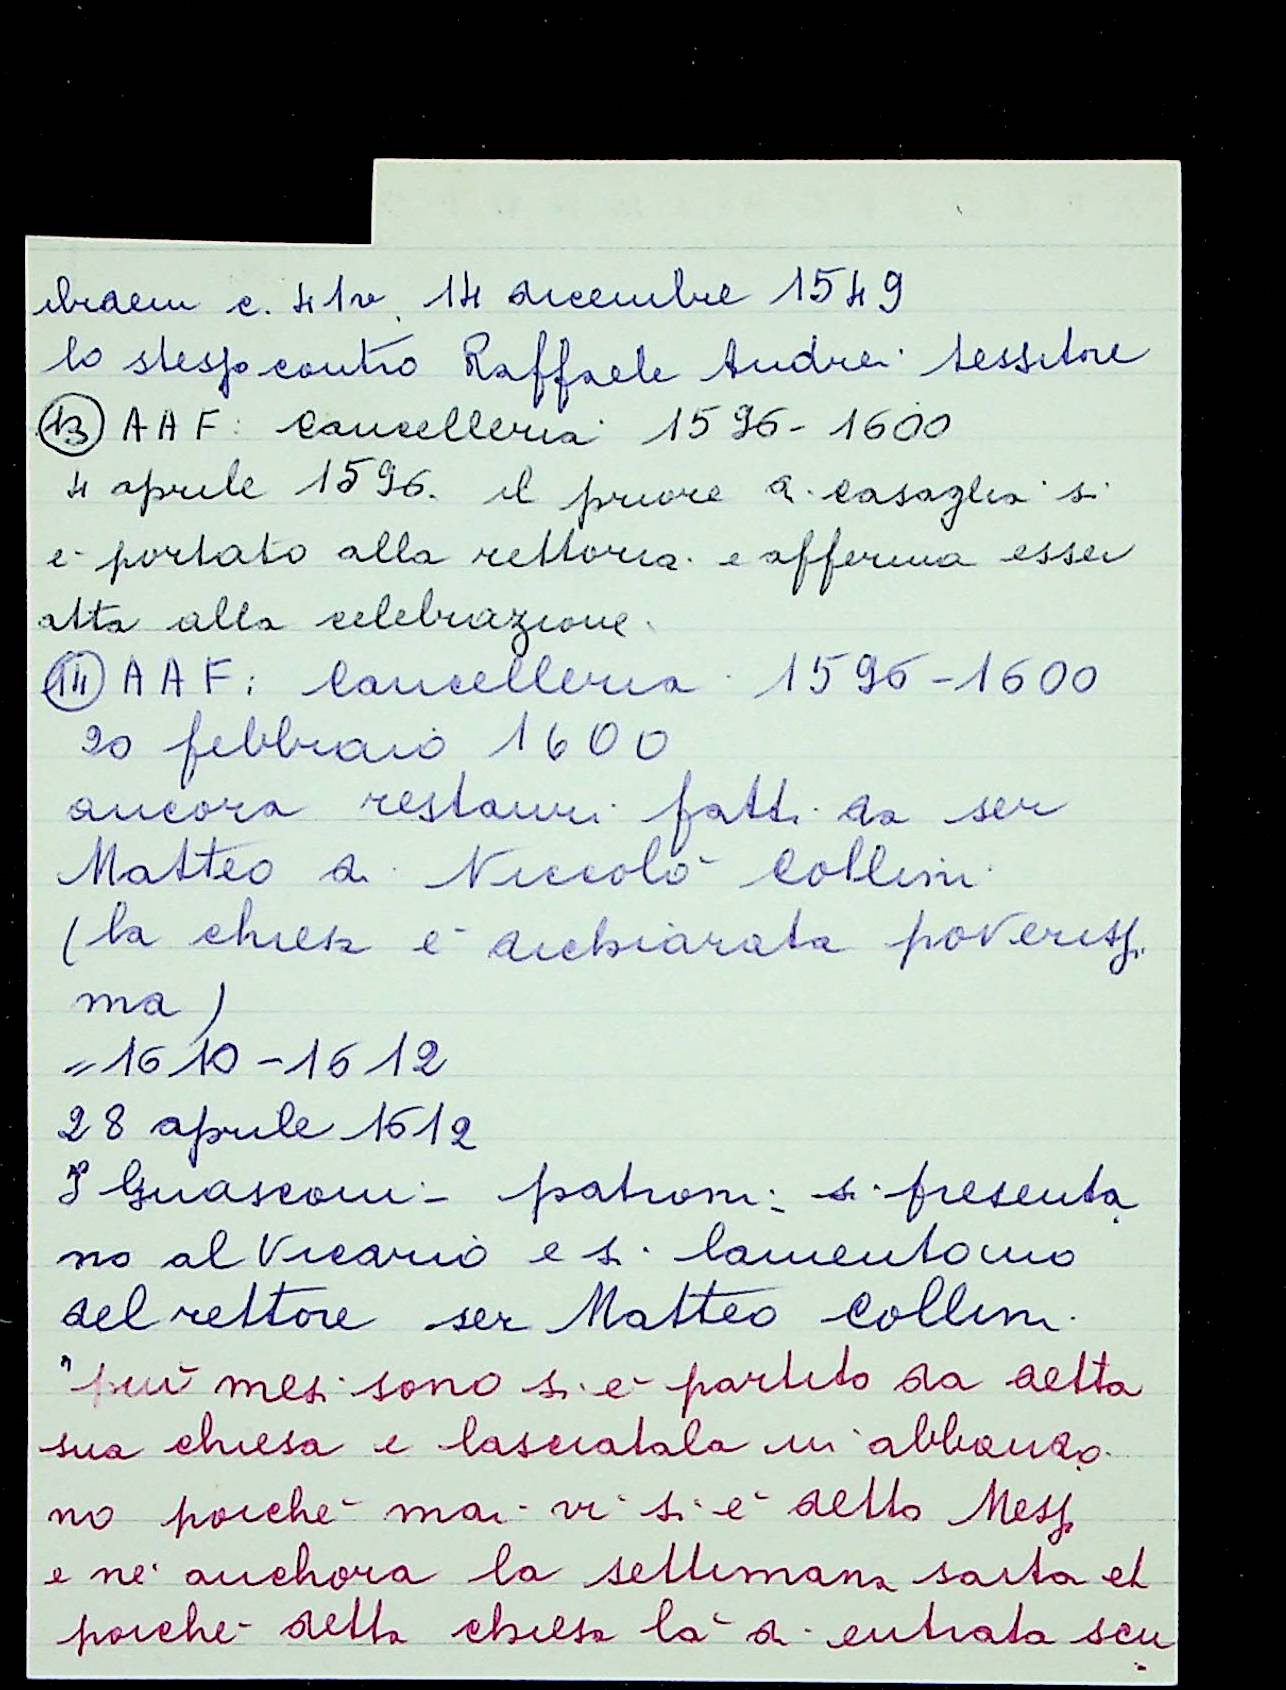 ibidem c. 41v, 14 dicembre 1549
lo stesso contro Raffaele Andrei tessitore
(13) AAF: Cancelleria 1596-1600
4 aprile 1596. il priore di Casaglia si
è portato alla rettoria e afferma esser
atta alla celebrazione.
(14) AAF: Cancelleria 1596-1600
20 febbraio 1600
ancora restauri fatti da ser
Matteo di Niccolò Collini
(la chiesa è dichiarata poverissi
ma)
=1610-1612
28 aprile 1612
I Guasconi - patroni - si presenta
no al Vicario e si lamentono
del rettore ser Matteo Collini.
"più mesi sono si è partito da detta
sua chiesa e lasciatala in abbando
no poiché mai vi si è detto Messa
e né anchora la settimana santa et
poiché detta chiesa là di entrata scu